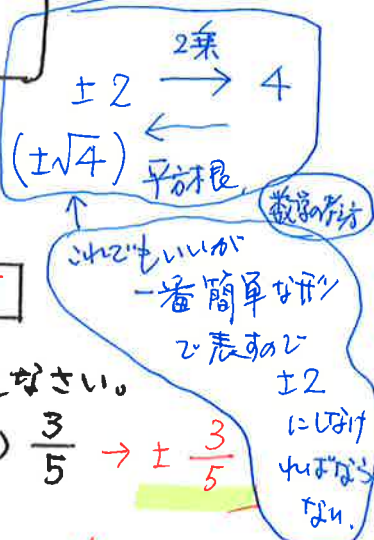 2乗
±2 → 4
←
(±√4) 平方根
↑
数学の考え方
これでもいいが
一番簡単な形
で表すので
±2
にしなけ
ればなら
ない。
なさい。
) 3/5 → ± 3/5